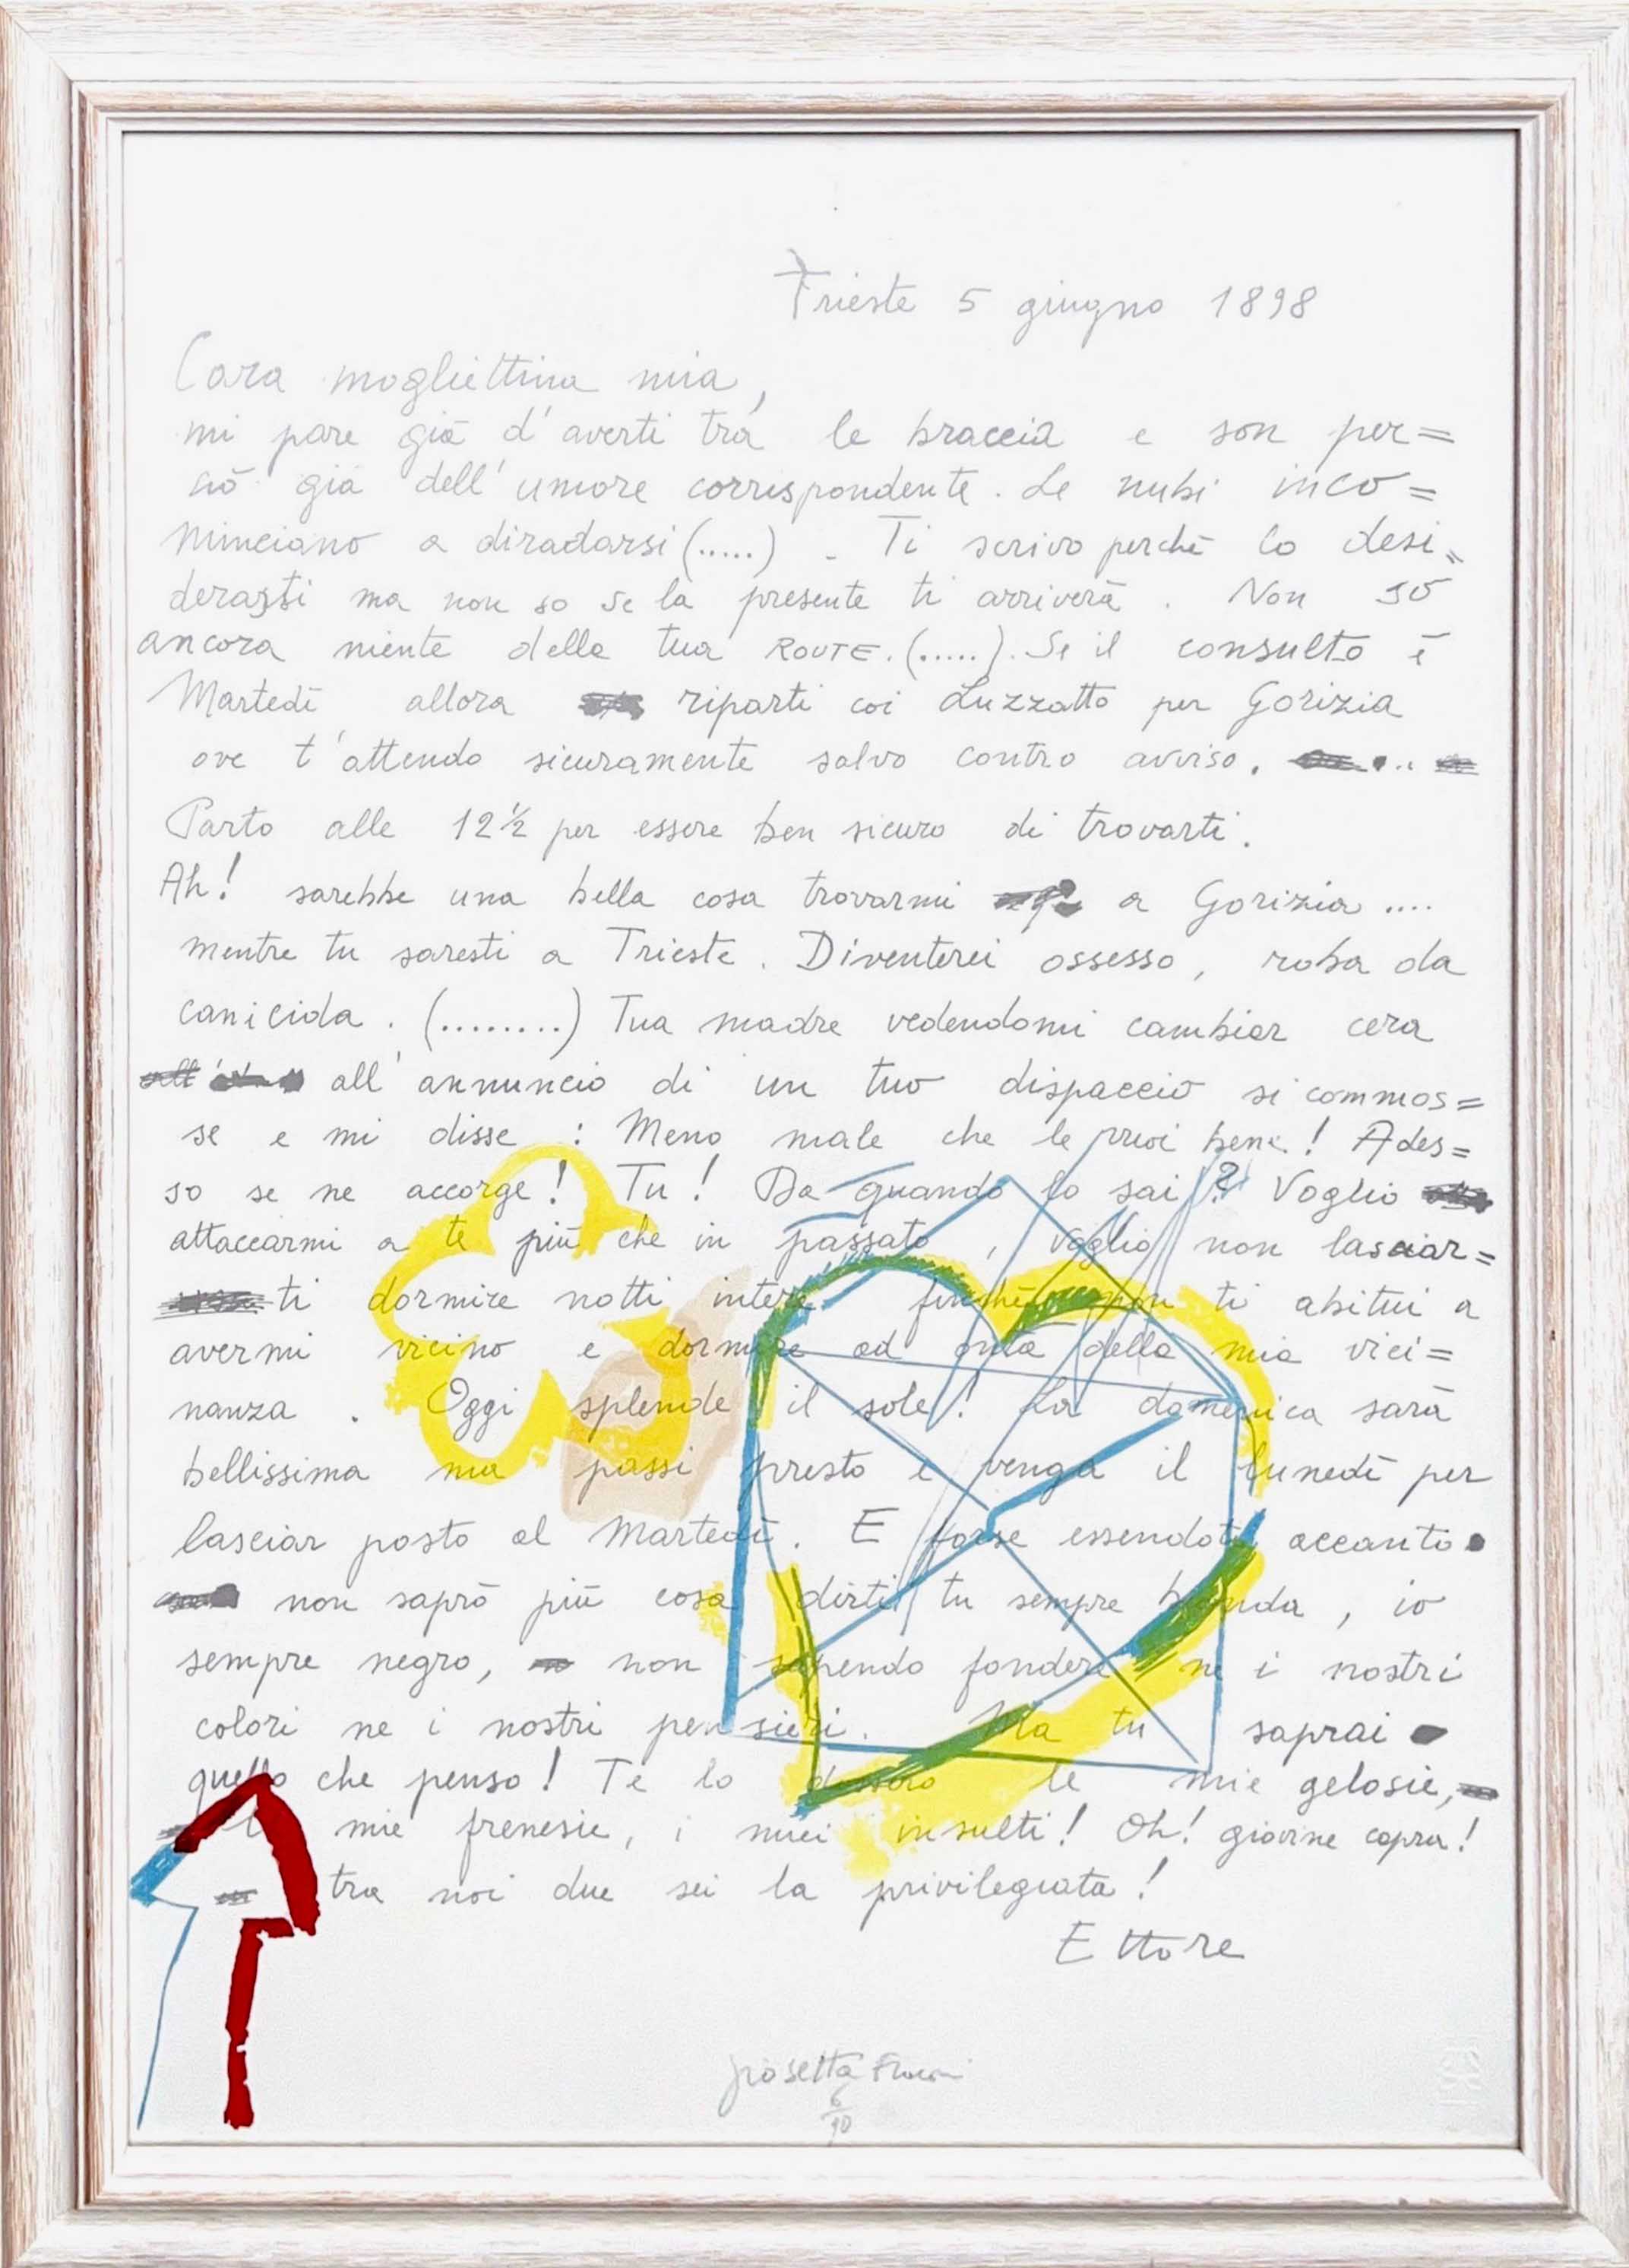 Trieste 5 giugno 1898
Cara mogliettina mia,
mi pare già d'averti tra le braccia e son per=
ciò già dell'umore corrispondente. Le nubi inco=
minciano a diradarsi (.....) - Ti scrivo perchè lo desi=
derasti ma non so se la presente ti arriverà. Non so
ancora niente della tua ROUTE. (.....). Se il consulto è
Martedì allora riparti coi Luzzatto per Gorizia
ove t'attendo sicuramente salvo contro avviso.
Parto alle 12½ per essere ben sicuro di trovarti.
Ah! sarebbe una bella cosa trovarmi a Gorizia ....
mentre tu saresti a Trieste. Diventerei ossesso, roba da
canicida. (........) Tua madre vedendomi cambiar cera
all'annuncio di un tuo dispaccio si commos=
se e mi disse : Meno male che le vuoi bene! Ades=
so se ne accorge! Tu! Da quando lo sai? Voglio
attaccarmi a te più che in passato, voglio non lasciar=
ti dormire notti intere finchè non ti abitui a
avermi vicino e dormire ad onta della mia vici=
nanza. Oggi splende il sole! La domenica sarà
bellissima ma passi presto e venga il lunedì per
lasciar posto al Martedì. E forse essendoti accanto
non saprò più cosa dirti, tu sempre bionda, io
sempre negro, non sapendo fondere ne i nostri
colori ne i nostri pensieri. Ma tu saprai
quello che penso! Te lo dissero le mie gelosie,
mie frenesie, i miei insulti! Oh! giovine capra!
tra noi due sei la privilegiata!
Ettore
Giosetta Fioroni
6/90